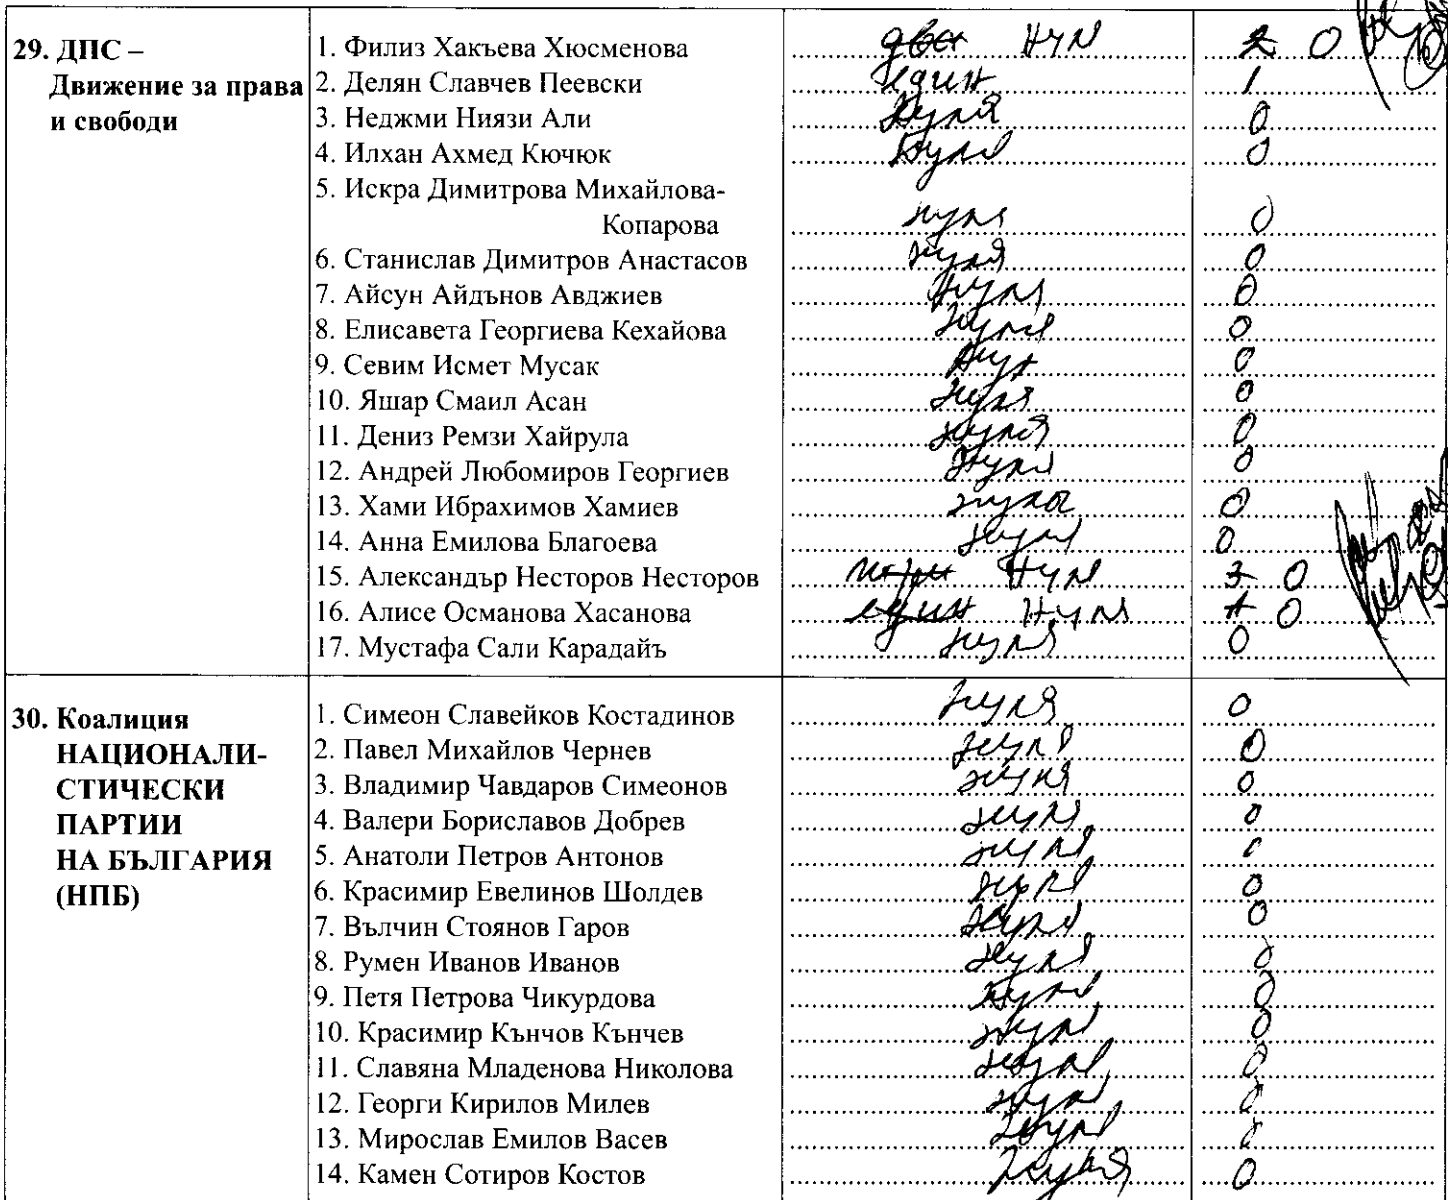 29. ДПС – 1. Филиз Хакъева Хюсменова ~~две~~ нул ~~2~~ 0
Движение за права 2. Делян Славчев Пеевски един 1
и свободи 3. Неджми Ниязи Али нуля 0
4. Илхан Ахмед Кючюк нула 0
5. Искра Димитрова Михайлова-
Копарова нуля 0
6. Станислав Димитров Анастасов нуля 0
7. Айсун Айдънов Авджиев нуля 0
8. Елисавета Георгиева Кехайова нуля 0
9. Севим Исмет Мусак 0
10. Яшар Смаил Асан нуля 0
11. Дениз Ремзи Хайрула нуля 0
12. Андрей Любомиров Георгиев нуля 0
13. Хами Ибрахимов Хамиев нула 0
14. Анна Емилова Благоева нуля 0
15. Александър Несторов Несторов ~~три~~ нул ~~3~~ 0
16. Алисе Османова Хасанова ~~един~~ нуля ~~1~~ 0
17. Мустафа Сали Карадайъ нуля 0
30. Коалиция 1. Симеон Славейков Костадинов нуля 0
НАЦИОНАЛИ- 2. Павел Михайлов Чернев нуля 0
СТИЧЕСКИ 3. Владимир Чавдаров Симеонов нуля 0
ПАРТИИ 4. Валери Бориславов Добрев нуля 0
НА БЪЛГАРИЯ 5. Анатоли Петров Антонов нуля 0
(НПБ) 6. Красимир Евелинов Шолдев нуля 0
7. Вълчин Стоянов Гаров нуля 0
8. Румен Иванов Иванов нуля 0
9. Петя Петрова Чикурдова нуля 0
10. Красимир Кънчов Кънчев нуля 0
11. Славяна Младенова Николова нуля 0
12. Георги Кирилов Милев нуля 0
13. Мирослав Емилов Васев нуля 0
14. Камен Сотиров Костов нуля 0